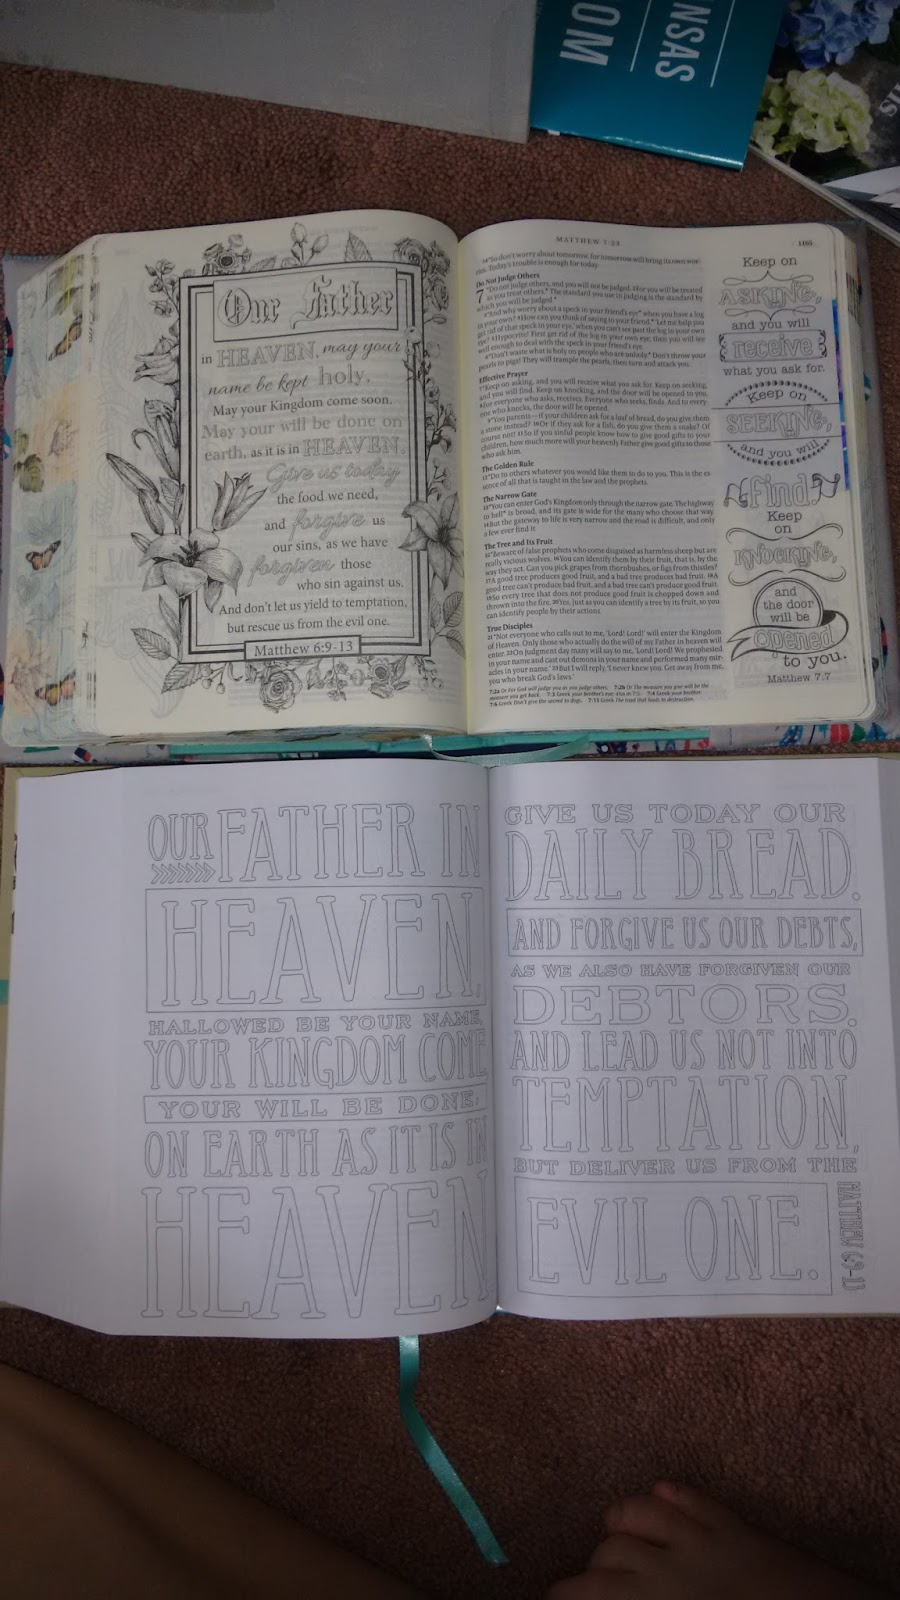 NSAS
OM
Our Father
in HEAVEN, may your
name be kept holy.
May your Kingdom come soon.
May your will be done on
earth, as it is in HEAVEN.
Give us today
the food we need,
and forgive us
our sins, as we have
forgiven those
who sin against us.
And don't let us yield to temptation,
but rescue us from the evil one.
Matthew 6:9-13
MATTHEW 7:23
1165
34 "So don't worry about tomorrow, for tomorrow will bring its own wor-
ries. Today's trouble is enough for today.
Do Not Judge Others
7 "Do not judge others, and you will not be judged. 2 For you will be treated
as you treat others.* The standard you use in judging is the standard by
which you will be judged.*
3 "And why worry about a speck in your friend's eye* when you have a log
in your own? 4 How can you think of saying to your friend,* 'Let me help you
get rid of that speck in your eye,' when you can't see past the log in your own
eye? 5 Hypocrite! First get rid of the log in your own eye; then you will see
well enough to deal with the speck in your friend's eye.
6 "Don't waste what is holy on people who are unholy.* Don't throw your
pearls to pigs! They will trample the pearls, then turn and attack you.
Effective Prayer
7 "Keep on asking, and you will receive what you ask for. Keep on seeking,
and you will find. Keep on knocking, and the door will be opened to you.
8 For everyone who asks, receives. Everyone who seeks, finds. And to every-
one who knocks, the door will be opened.
9 "You parents—if your children ask for a loaf of bread, do you give them
a stone instead? 10 Or if they ask for a fish, do you give them a snake? Of
course not! 11 So if you sinful people know how to give good gifts to your
children, how much more will your heavenly Father give good gifts to those
who ask him.
The Golden Rule
12 "Do to others whatever you would like them to do to you. This is the es-
sence of all that is taught in the law and the prophets.
The Narrow Gate
13 "You can enter God's Kingdom only through the narrow gate. The highway
to hell* is broad, and its gate is wide for the many who choose that way.
14 But the gateway to life is very narrow and the road is difficult, and only
a few ever find it.
The Tree and Its Fruit
15 "Beware of false prophets who come disguised as harmless sheep but are
really vicious wolves. 16 You can identify them by their fruit, that is, by the
way they act. Can you pick grapes from thornbushes, or figs from thistles?
17 A good tree produces good fruit, and a bad tree produces bad fruit. 18 A
good tree can't produce bad fruit, and a bad tree can't produce good fruit.
19 So every tree that does not produce good fruit is chopped down and
thrown into the fire. 20 Yes, just as you can identify a tree by its fruit, so you
can identify people by their actions.
True Disciples
21 "Not everyone who calls out to me, 'Lord! Lord!' will enter the Kingdom
of Heaven. Only those who actually do the will of my Father in heaven will
enter. 22 On judgment day many will say to me, 'Lord! Lord! We prophesied
in your name and cast out demons in your name and performed many mir-
acles in your name.' 23 But I will reply, 'I never knew you. Get away from me,
you who break God's laws.'
7:2a Or For God will judge you as you judge others. 7:2b Or The measure you give will be the
measure you get back. 7:3 Greek your brother's eye; also in 7:5. 7:4 Greek your brother.
7:6 Greek Don't give the sacred to dogs. 7:13 Greek The road that leads to destruction.
Keep on
ASKING,
and you will
receive
what you ask for.
Keep on
SEEKING,
and you will
find.
Keep
on
KNOCKING,
and
the door
will be
opened
to you.
Matthew 7:7
OUR FATHER IN
HEAVEN,
HALLOWED BE YOUR NAME,
YOUR KINGDOM COME
YOUR WILL BE DONE;
ON EARTH AS IT IS IN
HEAVEN.
GIVE US TODAY OUR
DAILY BREAD.
AND FORGIVE US OUR DEBTS,
AS WE ALSO HAVE FORGIVEN OUR
DEBTORS.
AND LEAD US NOT INTO
TEMPTATION,
BUT DELIVER US FROM THE
EVIL ONE.
MATTHEW 6:9-13